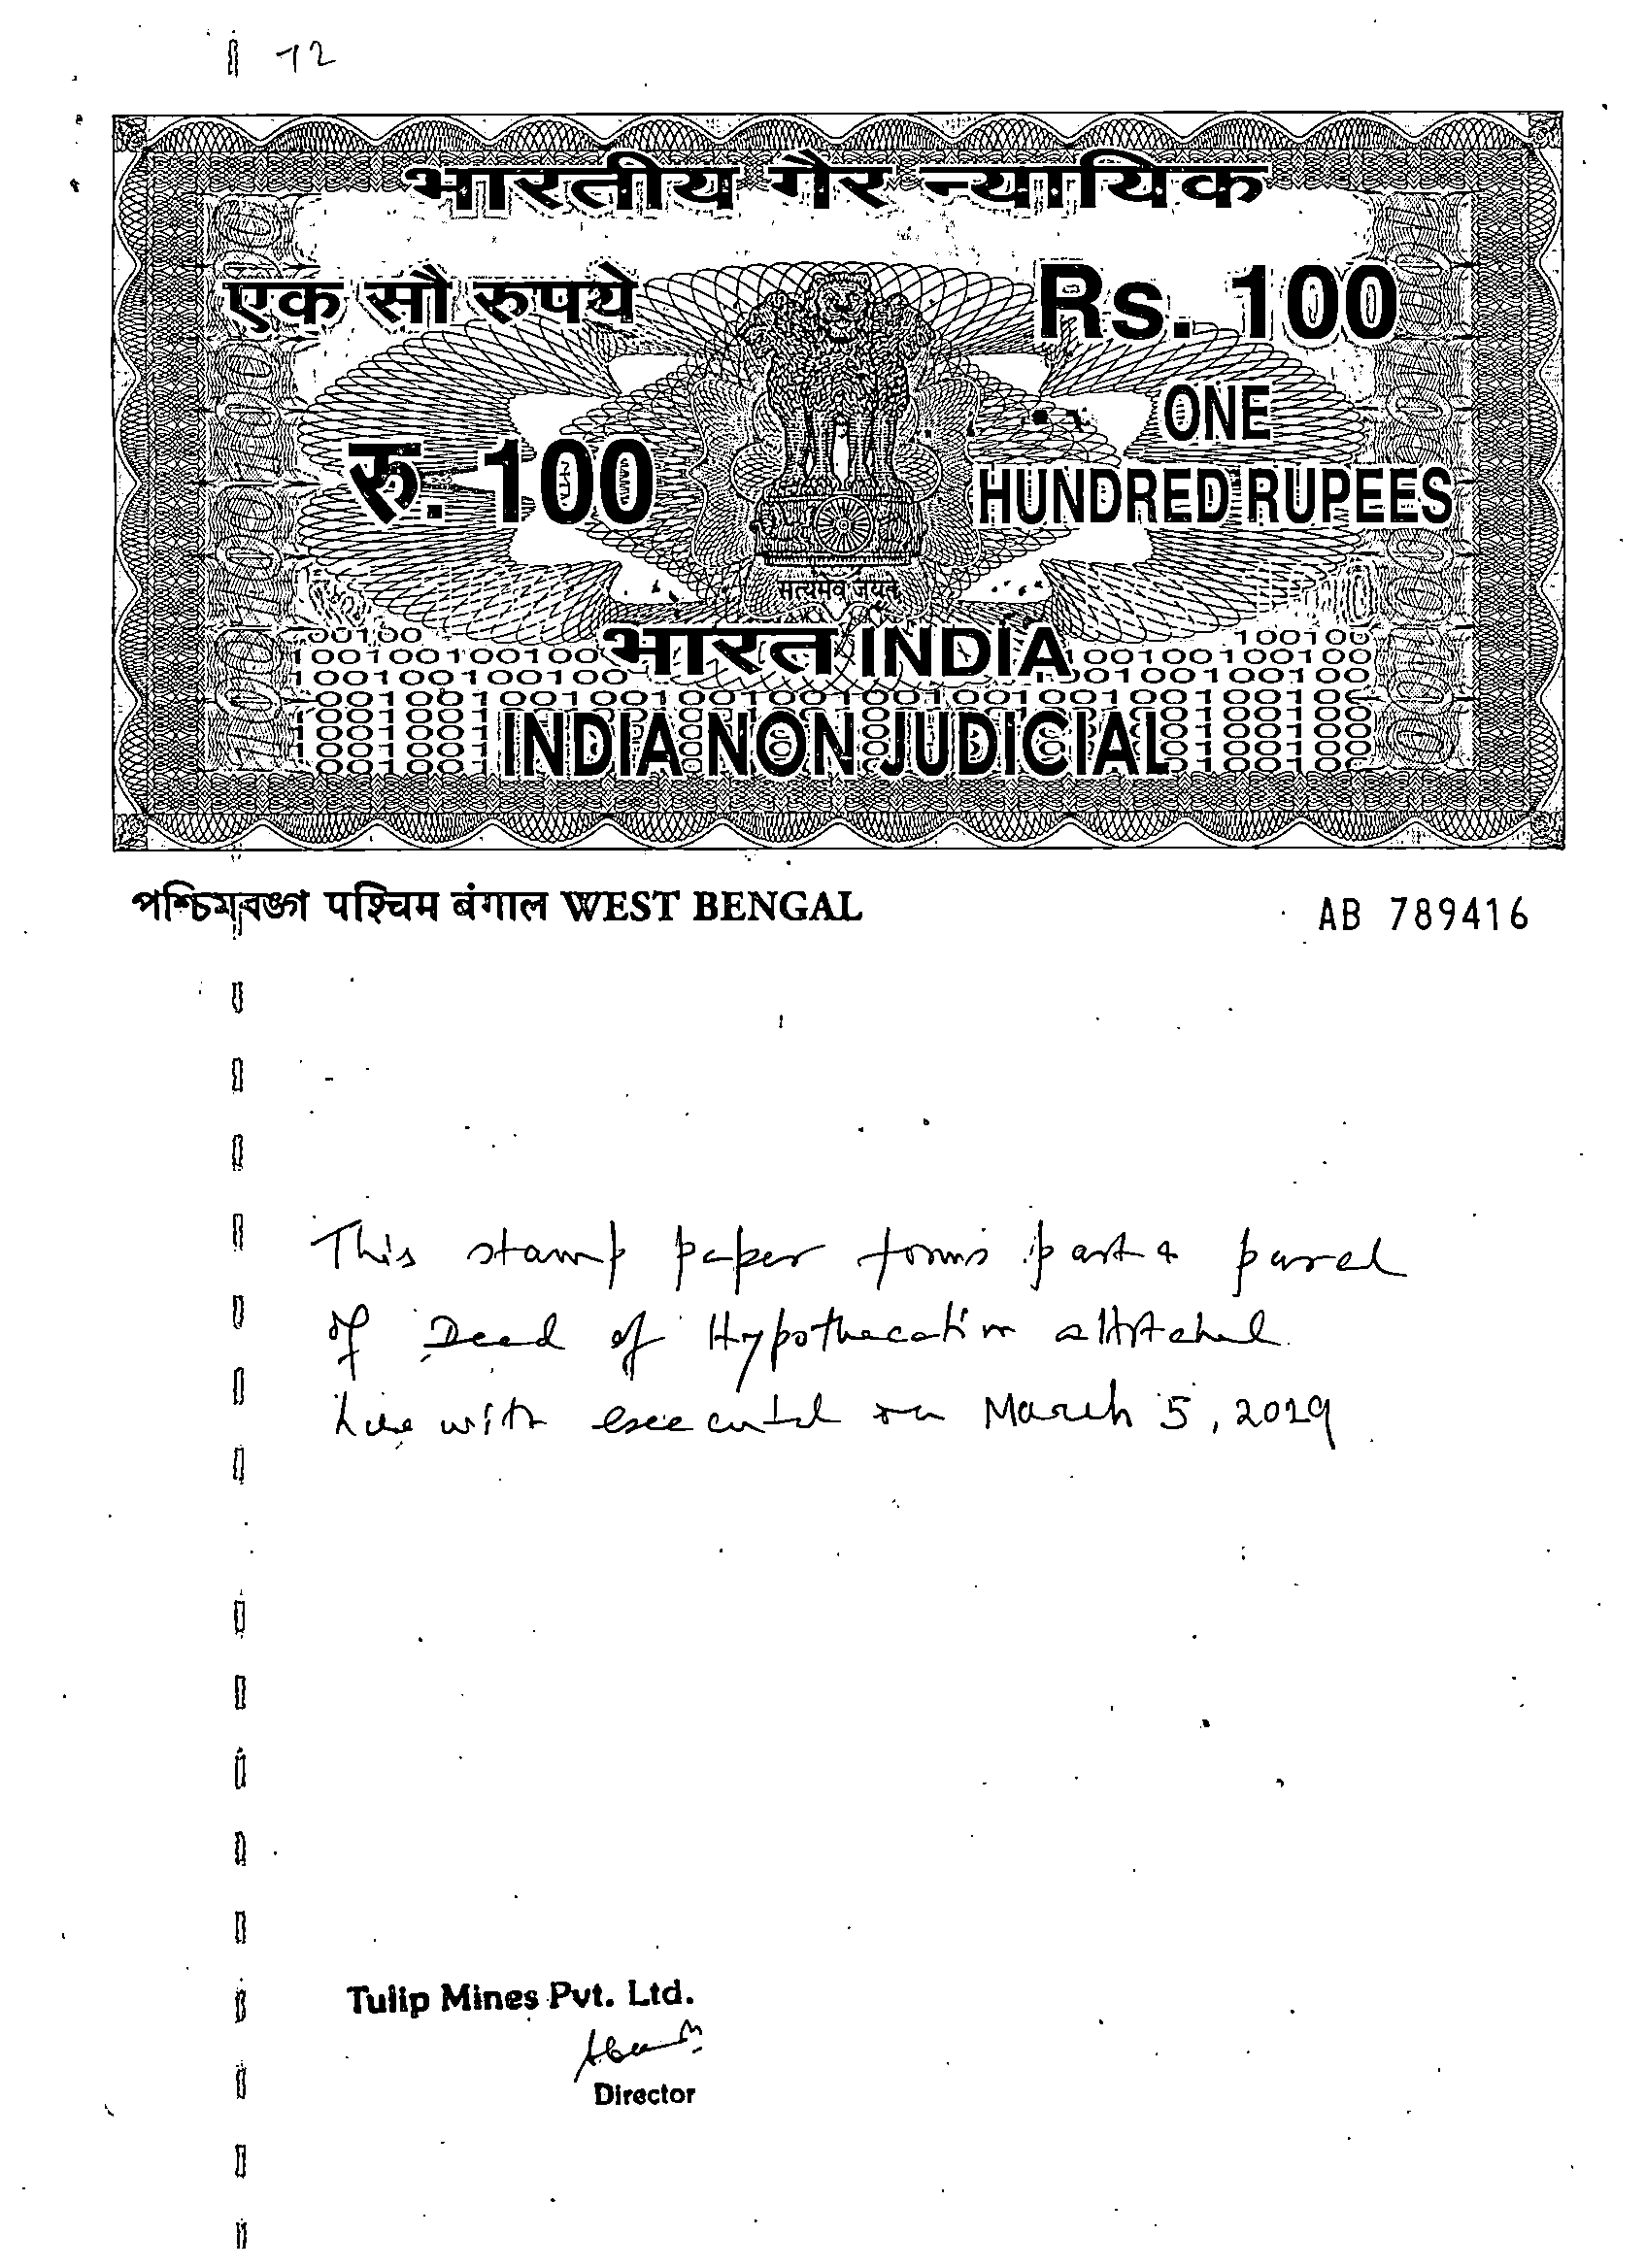 72
भारतीय गैर न्यायिक
एक सौ रुपये
Rs. 100
रु. 100
ONE
HUNDRED RUPEES
सत्यमेव जयते
भारत INDIA
INDIA NON JUDICIAL
পশ্চিমবঙ্গ पश्चिम बंगाल WEST BENGAL
AB 789416
This stamp paper forms part & parcel
of Deed of Hypothecation attached
herewith executed on March 5, 2019
Tulip Mines Pvt. Ltd.
Director